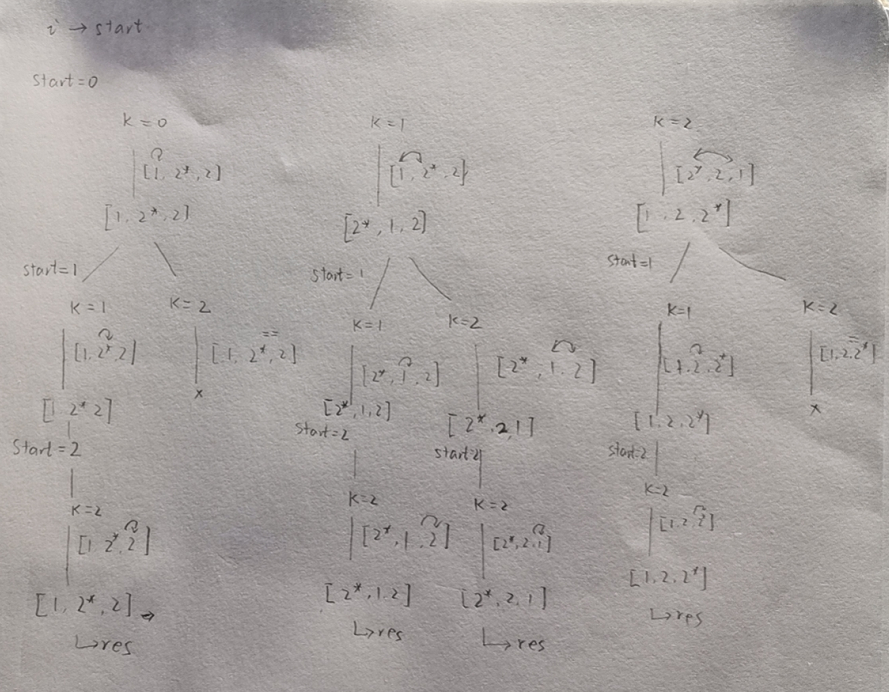 i → start
start=0
K=0 K=1 K=2
[1, 2*, 2] [1, 2*, 2] [2*, 2, 1]
[1, 2*, 2] [2*, 1, 2] [1, 2, 2*]
start=1 start=1 start=1
K=1 K=2 K=1 K=2 K=1 K=2
[1, 2*, 2] [1, 2*, 2] [2*, 1, 2] [2*, 1, 2] [1, 2, 2*] [1, 2, 2*]
==
==
x x
[1 2* 2] [2*, 1, 2] [2*, 2, 1] [1, 2, 2*]
start=2 start=2 start=2 start=2
K=2 K=2 K=2 K=2
[1 2* 2] [2*, 1, 2] [2*, 2, 1] [1, 2, 2]
[1, 2*, 2] → [2*, 1, 2] [2*, 2, 1] [1, 2, 2*]
↳res ↳res ↳res ↳res